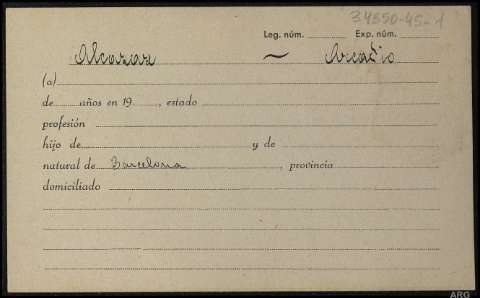 34550-45-1
Leg. núm. Exp. núm.
Alcazar ~ Arcadio
(a)
de años en 19 , estado
profesión
hijo de y de
natural de Barcelona , provincia
domiciliado
ARG